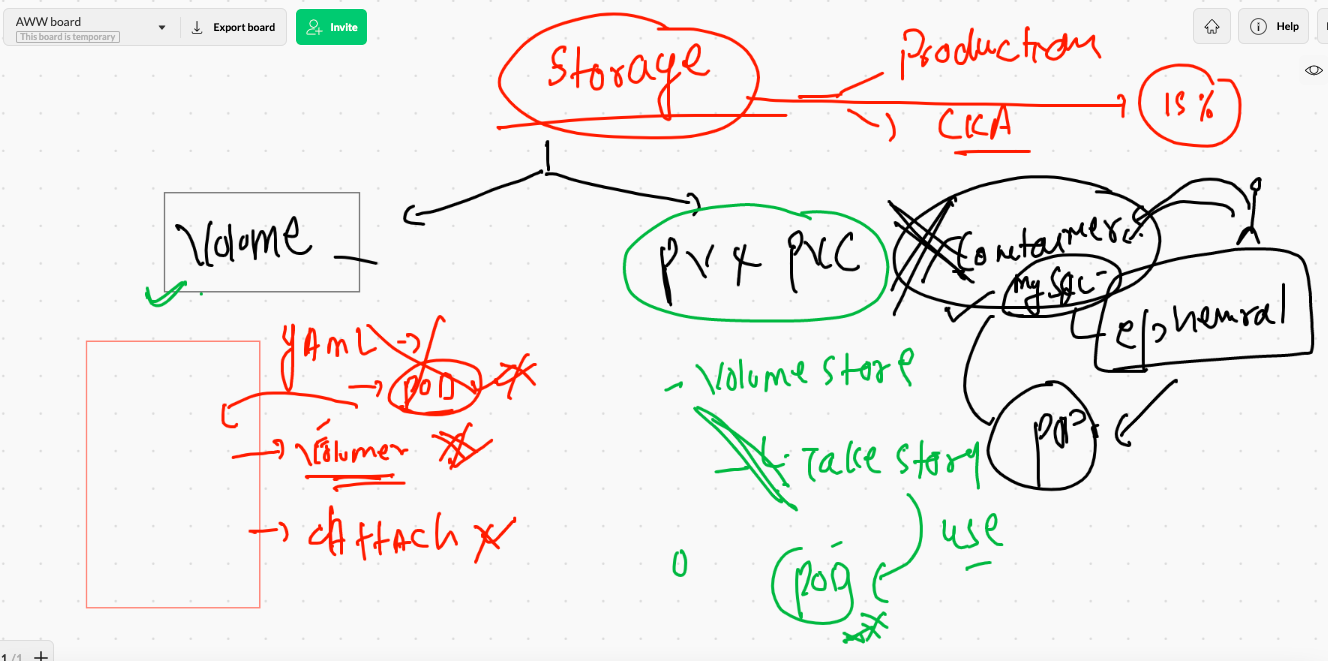 AWW board
This board is temporary
Export board
Invite
Help
Storage
Production
CKA
15%
Volume
PV & PVC
Container
MySQL
ephemral
YAML
POD
Volumer
Attach
Volume store
Take story
use
POD
POP
0
1/1